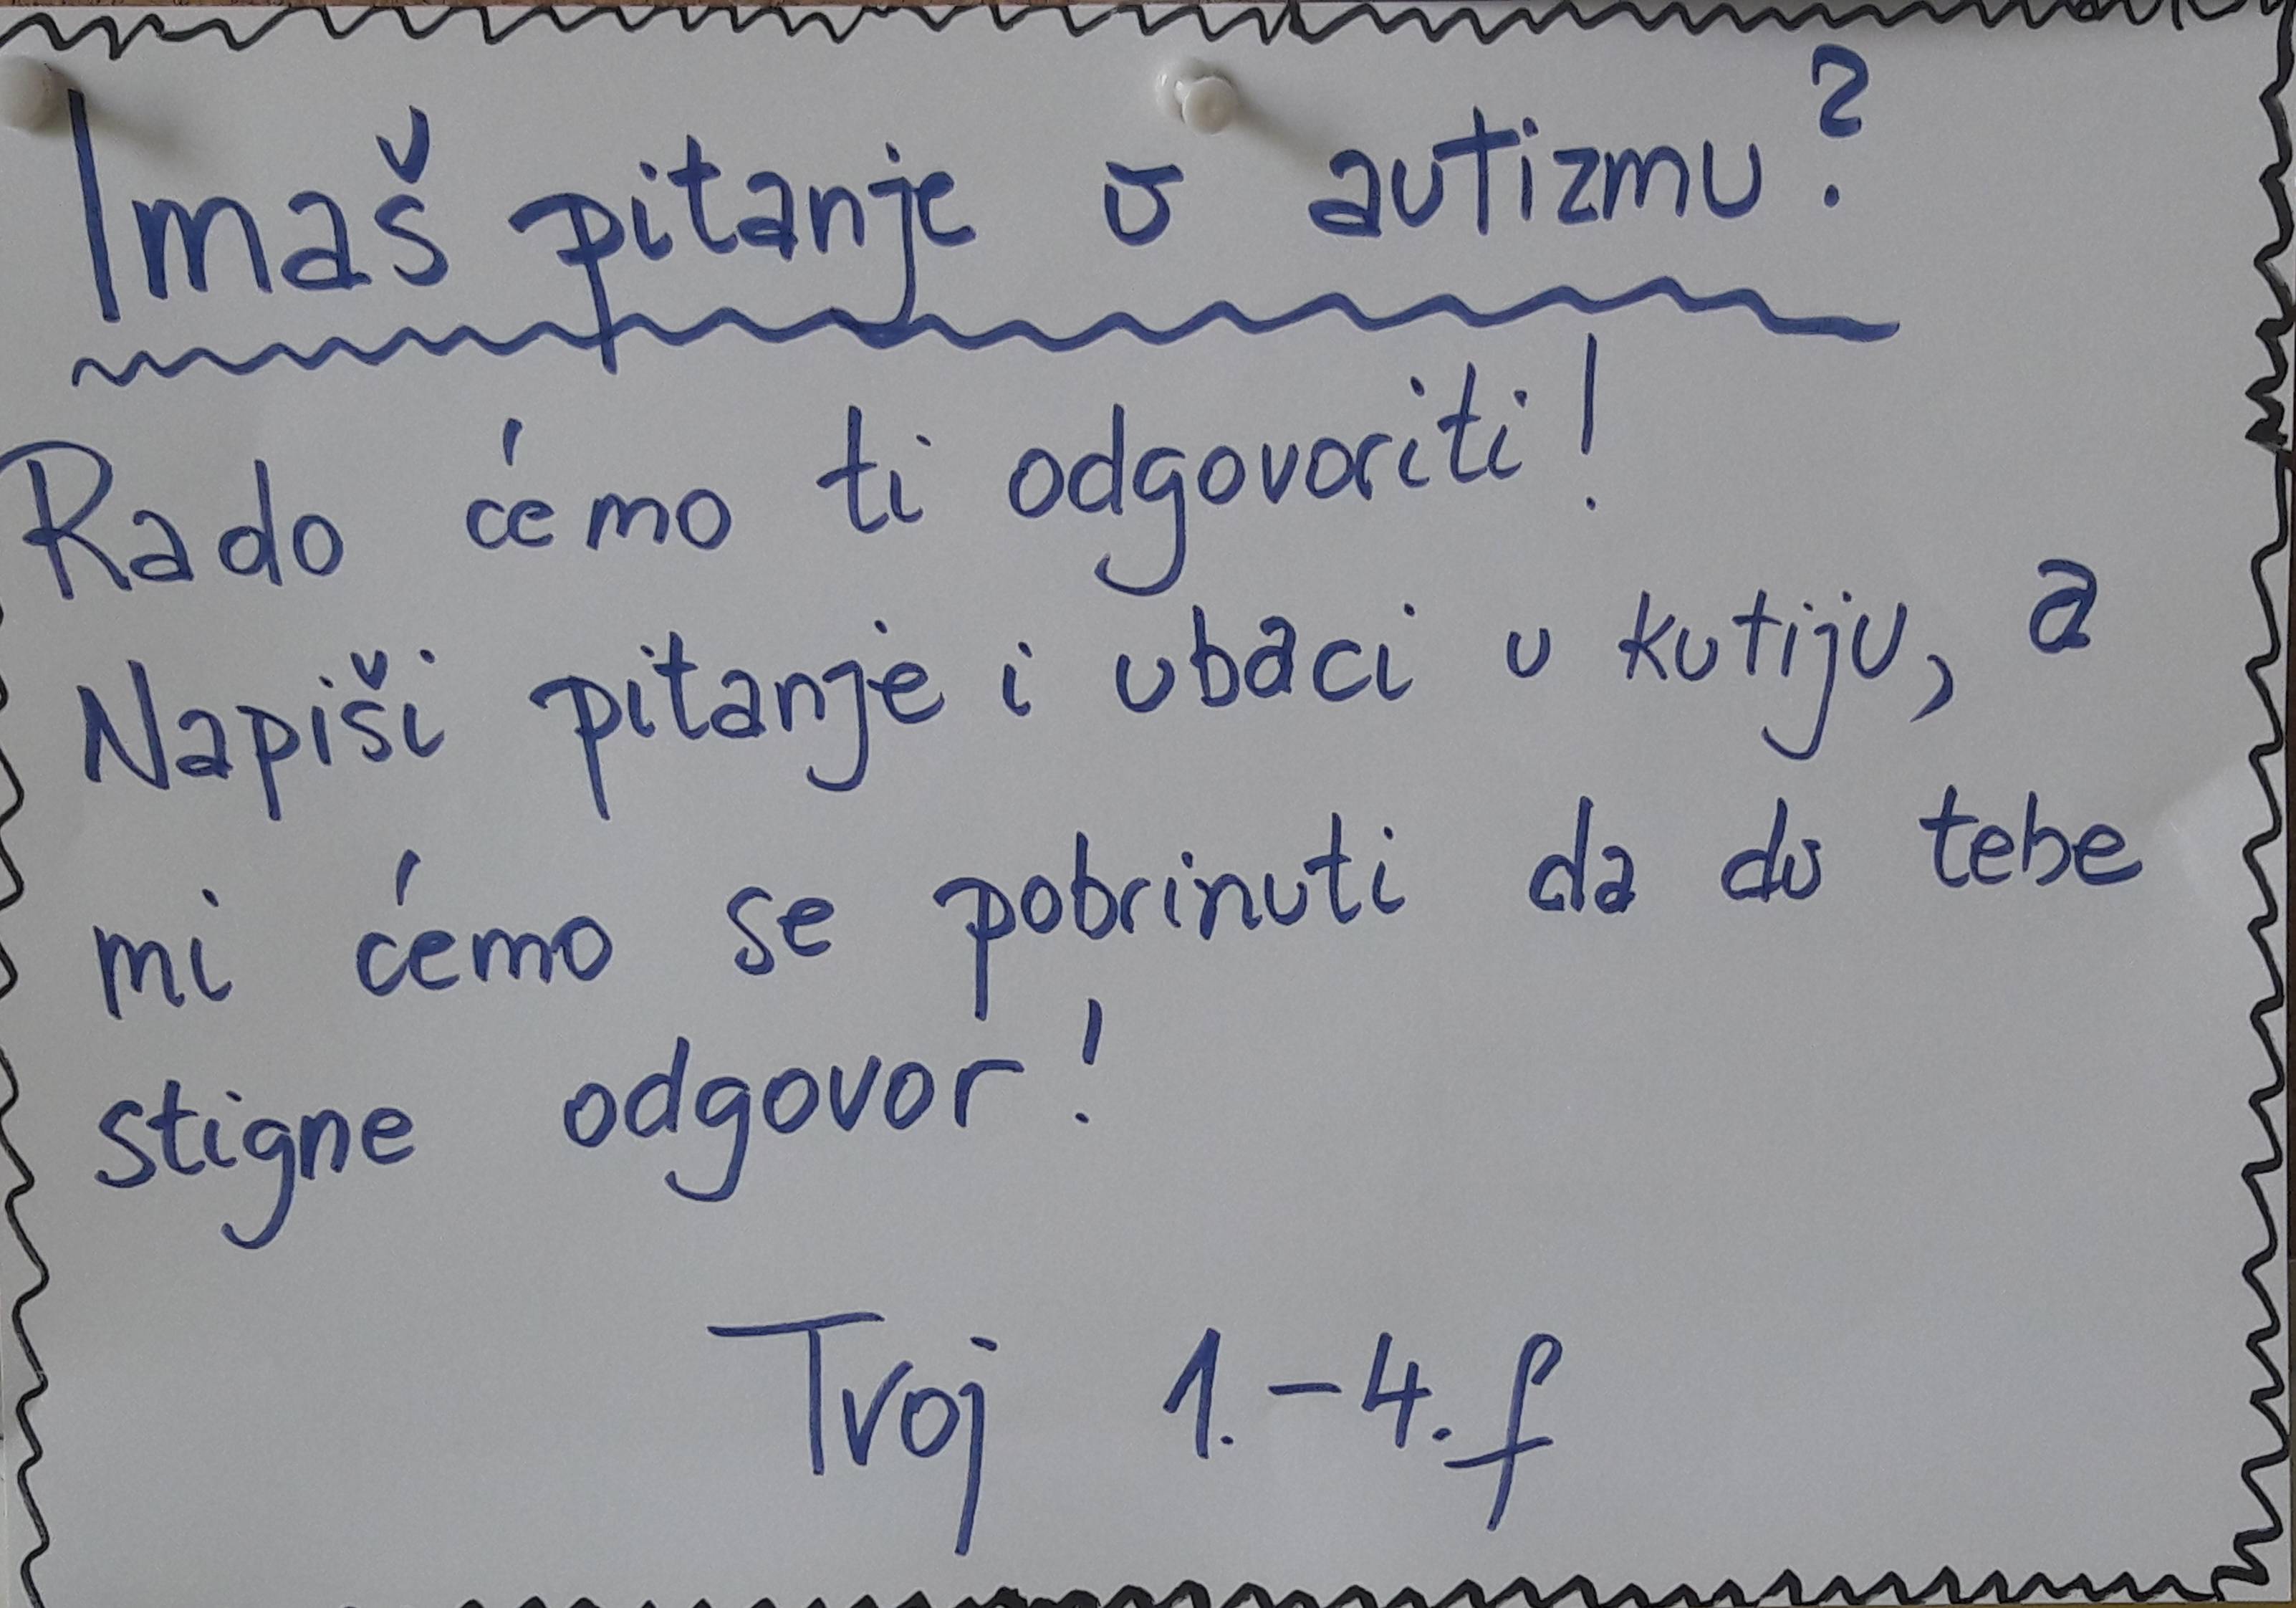 Imaš pitanje o autizmu?
Rado ćemo ti odgovoriti!
Napiši pitanje i ubaci u kutiju, a
mi ćemo se pobrinuti da do tebe
stigne odgovor!
Tvoj 1.-4.f